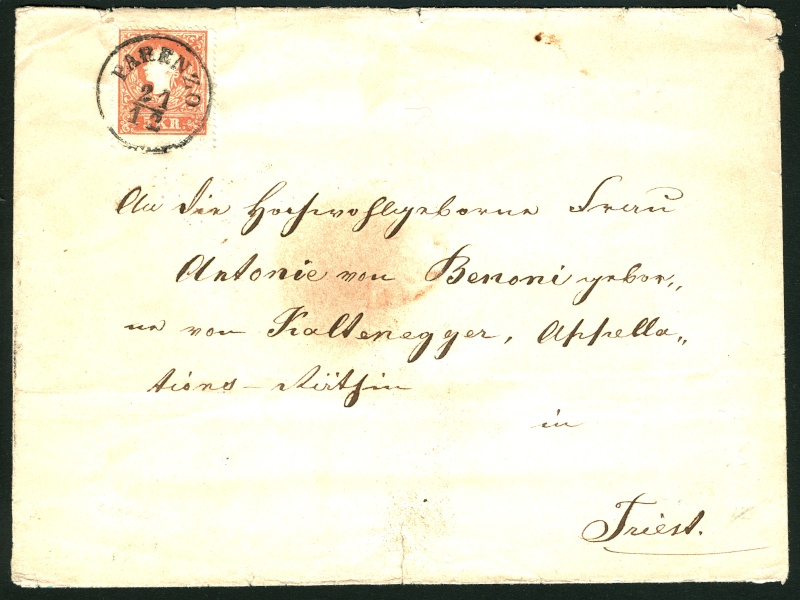 PARENZO
21
12
5 KR.
An die Hochwohlgeborne Frau
Antonie von Benoni gebor„
ne von Kaltenegger, Appella„
tions-Räthin
in
Triest.